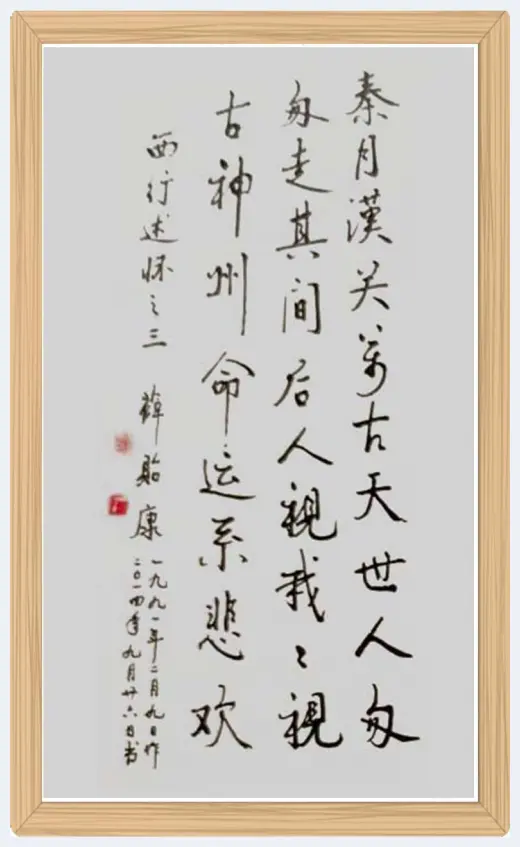 秦月漢关萬古天世人匆
匆走其间后人視我〻視
古神州命运系悲欢
西行述怀之三 薛貽康
一九九一年二月九日作
二〇一四年九月廿六日书